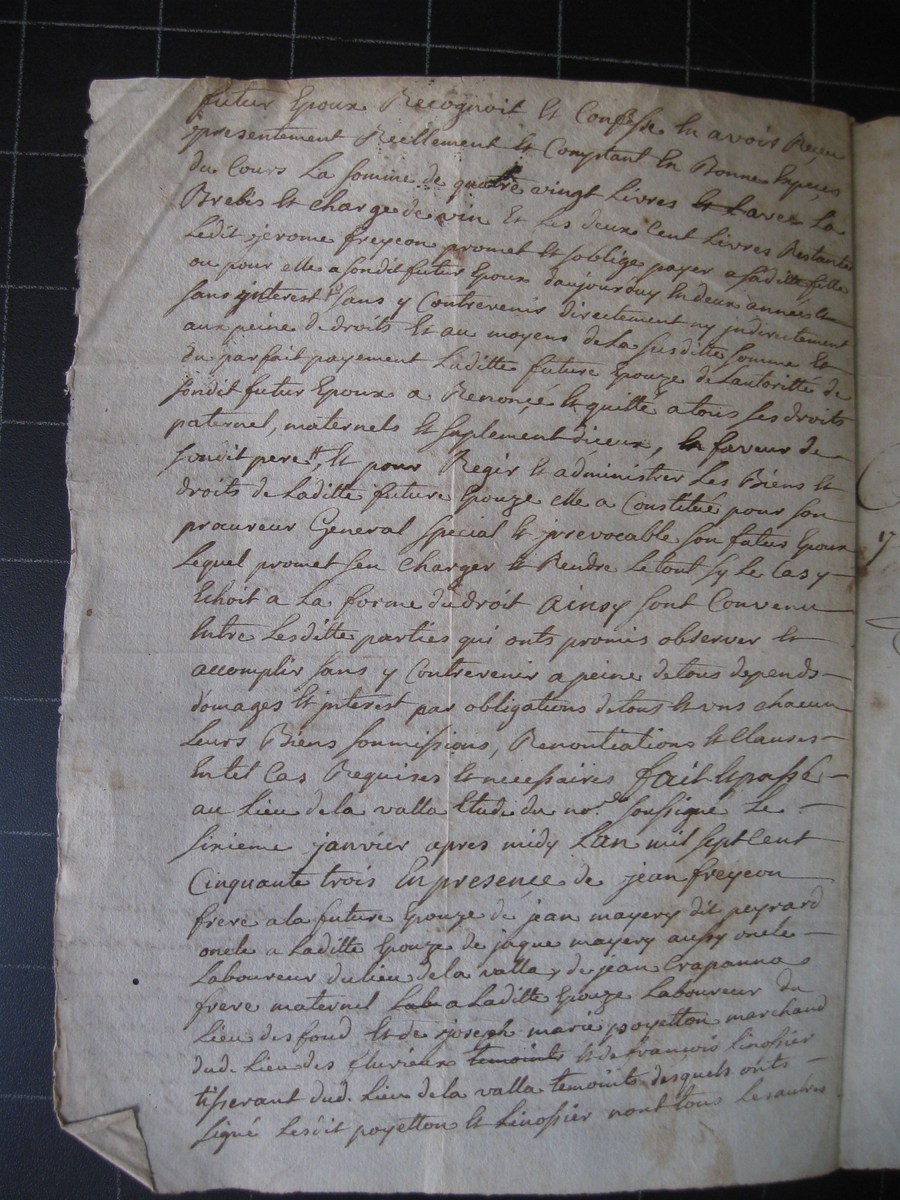 futur Epoux Recognoit Et Confesse En avoir Reçeu
presentement Reellement Et Comptant En Bonne Especes
du Cours La somme de quatre vingt Livres Et Lavez La
Brebis Et charge de vin Et Les deux Cent Livres Restantes
Ledit jerome freycon promet Et soblige payer a saditte fille
ou pour elle a sondit futur Epoux daujourduy En deux années
sans jnterest Et sans y Contrevenir directement ny jndirectement
aux peine de droits Et au moyens de La susditte somme Et
du parfait payement Laditte future Epouze de Lautoritté de
sondit futur Epoux a Renoncé Et quitté a tous ses droits
paternel, maternels Et suplement diceux, En faveur de
sondit pere, Et pour Regir Et administrer Les Biens Et
droits de Laditte future Epouze elle a Constitué pour son
procureur General special Et jrevocable son futur Epoux
Lequel promet sen charger Et Rendre Le tout sy Le Cas y
Echoit a La forme du droit Ainsy sont Convenu
Entre Lesditte parties qui onts promis observer Et
accomplir sans y Contrevenir a peine de tous depends
domages Et jnterest par obligations de tous Et uns chacun
Leurs Biens soumissions, Renontiations Et Clauses
En tel Cas Requises Et necessaires fait Et passé
au Lieu de la valla Etude du no.re soussigné Le
sixieme janvier apres midy Lan mil sept Cent
Cinquante trois En presence de jean freycon
frere a la future Epouze de jean mayery dit peyrard
oncle a Laditte Epouze de jaque mayery aussy oncle
Laboureur du lieu de la valla, de jean Crapanna
frere maternel Lab a Laditte Epouze Laboureur du
Lieu des fond Et de joseph marie poyetton marchand
dud. Lieu des fluvieux temoints Et de francois Linossier
tisserant dud. Lieu de la valla temoints desquels onts
signé Lesdit poyetton Et Linossier nont tous Les autres
17